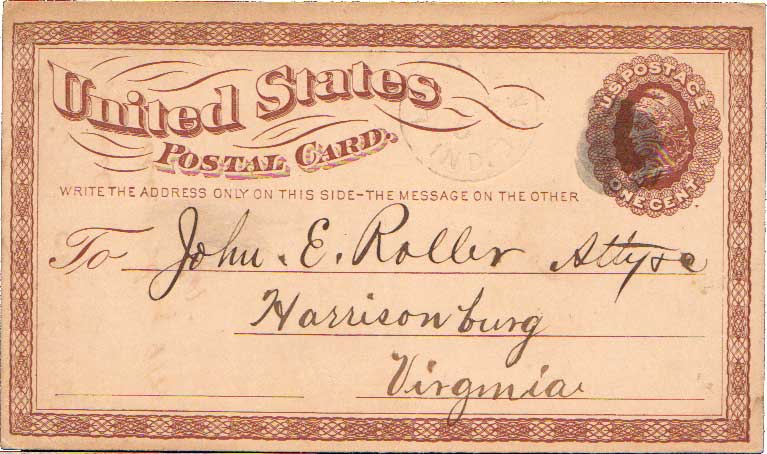 United States
POSTAL CARD.
U.S. POSTAGE
ONE CENT
IND.
WRITE THE ADDRESS ONLY ON THIS SIDE–THE MESSAGE ON THE OTHER
To John. E. Roller Atty &c
Harrisonburg
Virginia